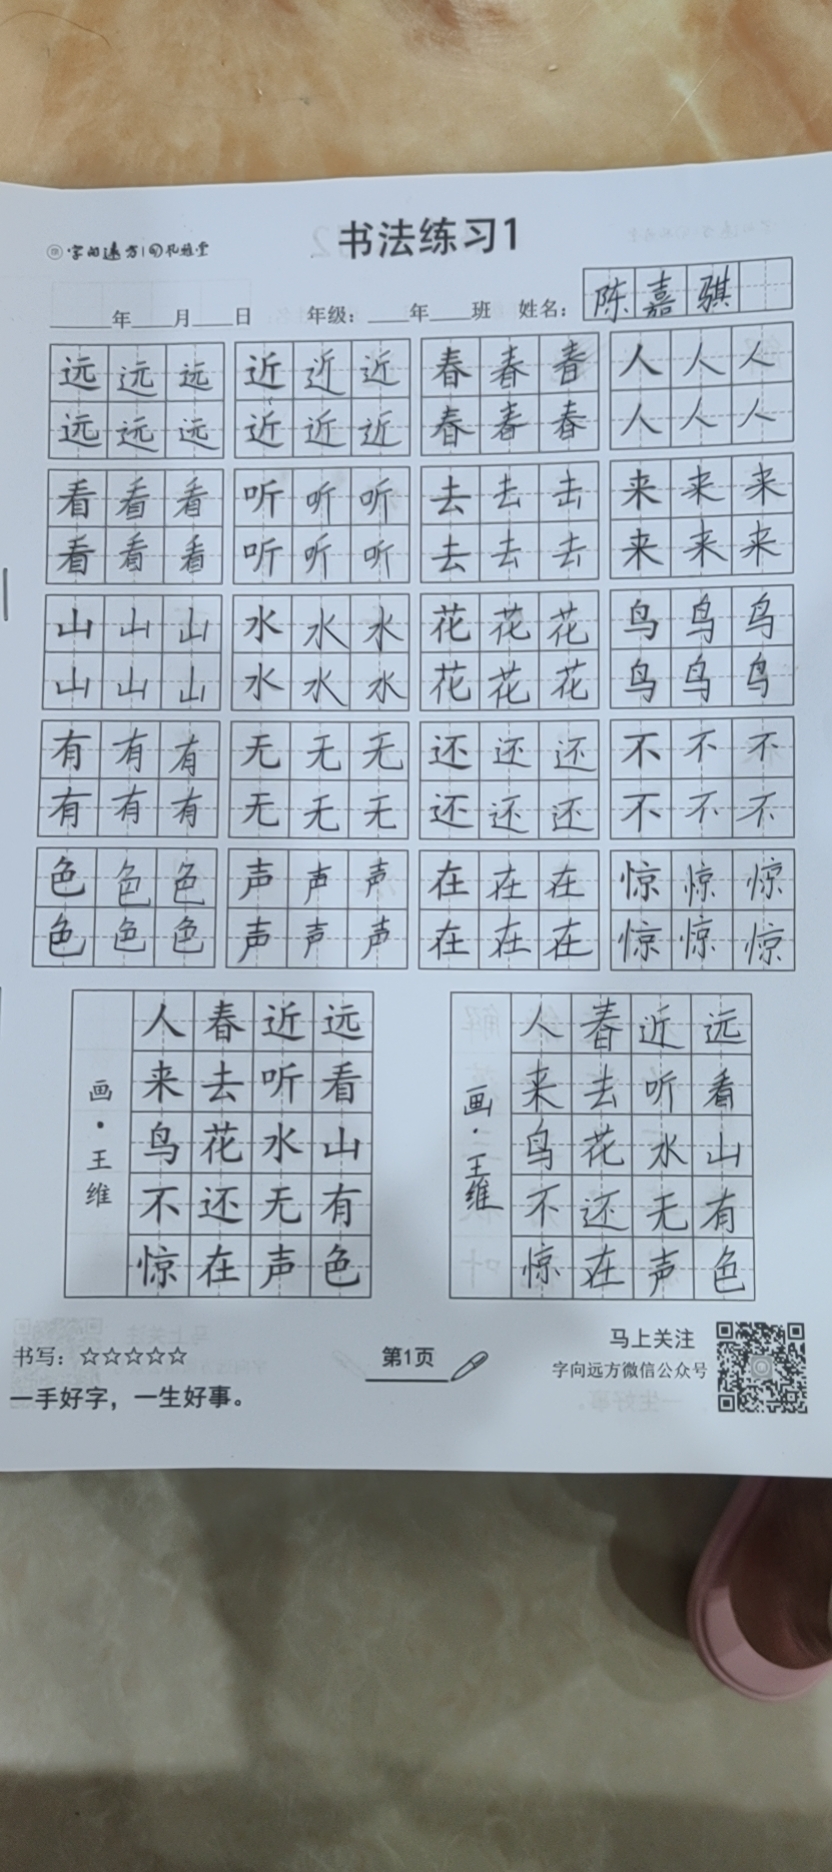 字向远方
书法练习1
年 月 日 年级： 年 班 姓名：陈嘉骐
远远远 近近近 春春春 人人人
远远远 近近近 春春春 人人人
看看看 听听听 去去去 来来来
看看看 听听听 去去去 来来来
山山山 水水水 花花花 鸟鸟鸟
山山山 水水水 花花花 鸟鸟鸟
有有有 无无无 还还还 不不不
有有有 无无无 还还还 不不不
色色色 声声声 在在在 惊惊惊
色色色 声声声 在在在 惊惊惊
远看山有色
近听水无声
春去花还在
人来鸟不惊
画·王维
远看山有色
近听水无声
春去花还在
人来鸟不惊
画·王维
书写：☆☆☆☆☆
一手好字，一生好事。
第1页
马上关注
字向远方微信公众号